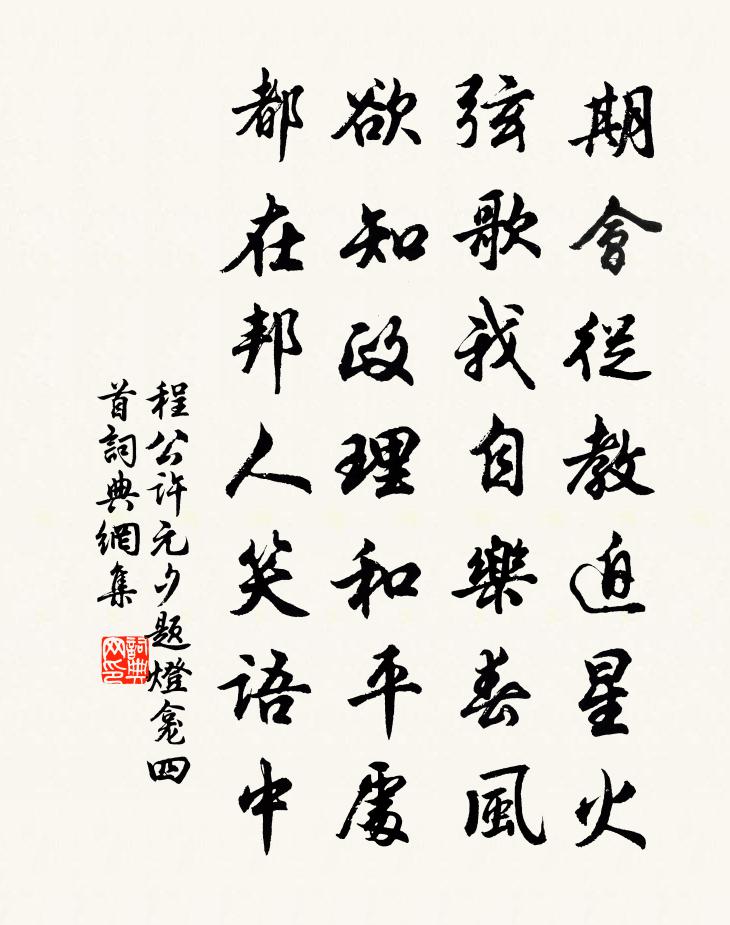 期會從教迫星火
弦歌我自樂春風
欲知政理和平處
都在邦人笑語中
程公許元夕題燈龕四
首詞典網集
詞典
网印